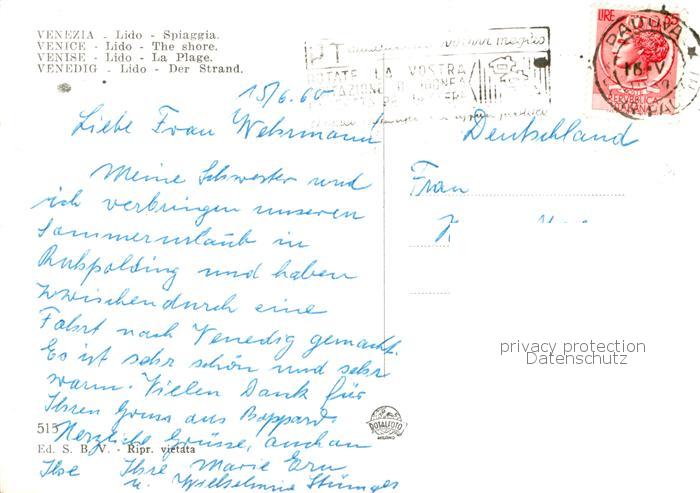 VENEZIA - Lido - Spiaggia.
VENICE - Lido - The shore.
VENISE - Lido - La Plage.
VENEDIG - Lido - Der Strand.
LIRE 55
PADOVA
VOSTRA
15/6.60
Liebe Frau Wehrmann
Deutschland
Frau
Meine Schwester und
ich verbringen unseren
Sommerurlaub in
Ruhpolding und haben
zwischendurch eine
Fahrt nach Venedig gemacht.
Es ist sehr schön und sehr
warm. Vielen Dank für
Ihren Gruss aus Boppard.
Herzliche Grüsse, auch an
Ilse Ihre Marie
u. Wilhelmine
privacy protection
Datenschutz
515
ROTALFOTO
MILANO
Ed. S. B. V. - Ripr. vietata